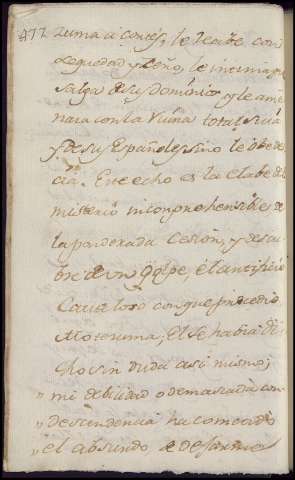 477 zuma á Cortés, le recibe con
sequedad y ceño, le intima
salga de sus dominios y le ame
naza con la Ruina total suia
y de sus Españoles sino le obede
cia. Este echo es la clabe del
misterio incomprehensible de
la ponderada Cesion, y descu
bre de un golpe, el artificio
Cauteloso con que procedio
Motezuma; El se habia di
cho sin duda asi mismo;
" mi debilidad o demasiada con
" descendencia ha cometido
" el absurdo de